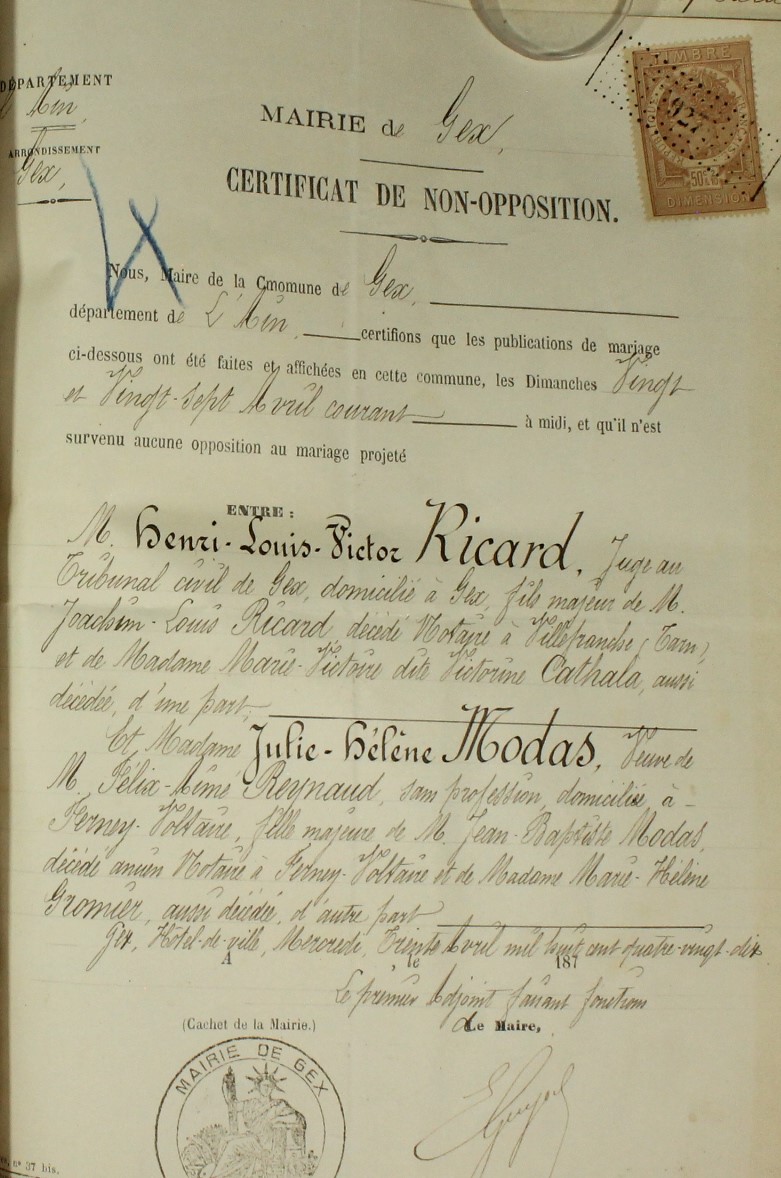 DÉPARTEMENT
L'Ain,
ARRONDISSEMENT
Gex,
TIMBRE
927
50c
DIMENSION
MAIRIE de Gex,
CERTIFICAT DE NON-OPPOSITION.
Nous, Maire de la Cmomune de Gex,
département de L'Ain, certifions que les publications de mariage
ci-dessous ont été faites et affichées en cette commune, les Dimanches Vingt
et Vingt-sept Avril courant à midi, et qu'il n'est
survenu aucune opposition au mariage projeté
ENTRE :
M. Henri-Louis-Victor Ricard, Juge au
Tribunal civil de Gex, domicilié à Gex, fils majeur de M.
Joachim-Louis Ricard, décédé Notaire à Villefranche (Tarn),
et de Madame Marie-Victoire dite Victorine Cathala, aussi
décédée, d'une part,
Et Madame Julie-Hélène Modas, Veuve de
M. Félix-Aimé Reynaud, sans profession, domiciliée à -
Ferney-Voltaire, fille majeure de M. Jean-Baptiste Modas,
décédé ancien Notaire à Ferney-Voltaire et de Madame Marie-Hélène
Gromier, aussi décédée, d'autre part
Gex, Hôtel-de-ville, Mercredi, Trente Avril mil huit cent quatre-vingt-dix
A le 187
Le premier Adjoint faisant fonctions
de Maire,
(Cachet de la Mairie.)
MAIRIE DE GEX
n° 37 bis.